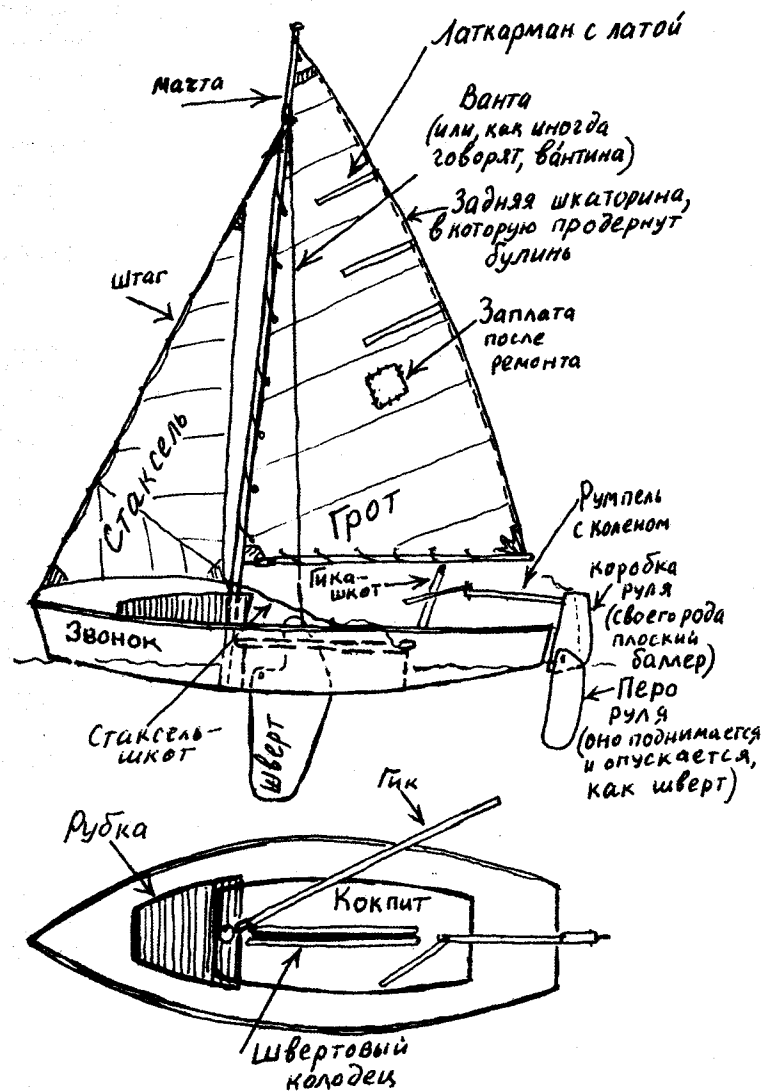 Латкарман с латой
мачта
Ванта
(или, как иногда
говорят, ва́нтина)
Задняя шкаторина,
в которую продернут
булинь
штаг
Заплата
после
ремонта
Стаксель
Грот
Румпель
с коленом
Гика-
шкот
коробка
руля
(своего рода
плоский
баллер)
Звонок
Перо
руля
(оно поднимается
и опускается,
как шверт)
Стаксель-
шкот
шверт
Гик
Рубка
Кокпит
Швертовый
колодец